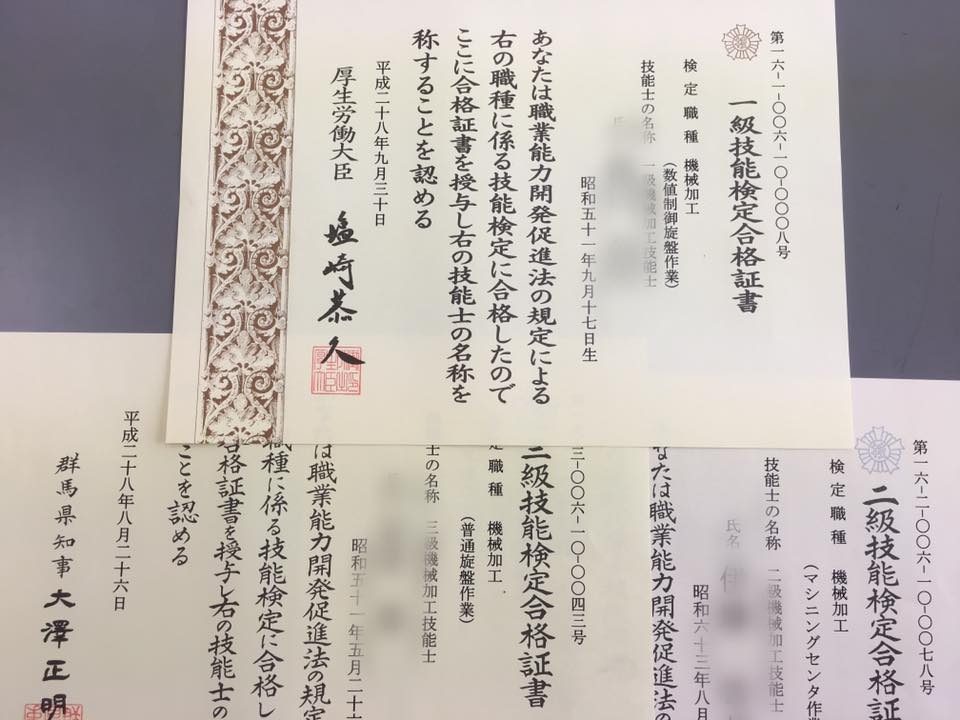 第一六-一-〇〇六-一〇-〇〇〇八号
一級技能検定合格証書
検定職種 機械加工
(数値制御旋盤作業)
技能士の名称 一級機械加工技能士
昭和五十一年九月十七日生
あなたは職業能力開発促進法の規定による
右の職種に係る技能検定に合格したので
ここに合格証書を授与し右の技能士の名称を
称することを認める
平成二十八年九月三十日
厚生労働大臣 塩崎恭久
第一六-二-〇〇六-一〇-〇〇七八号
二級技能検定合格証
検定職種 機械加工
(マシニングセンタ作業
技能士の名称 二級機械加工技能士
氏名
昭和六十三年八月
なたは職業能力開発促進法の
三-〇〇六-一〇-〇〇四三号
三級技能検定合格証書
定職種 機械加工
(普通旋盤作業)
士の名称 三級機械加工技能士
昭和五十一年五月二十
は職業能力開発促進法の規定
職種に係る技能検定に合格し
合格証書を授与し右の技能士の
ことを認める
平成二十八年八月二十六日
群馬県知事 大澤正明